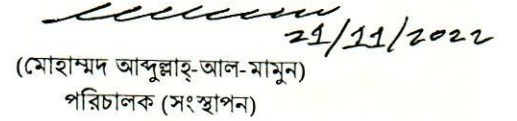 21/11/2022
(মোহাম্মদ আব্দুল্লাহ্-আল-মামুন)
পরিচালক (সংস্থাপন)